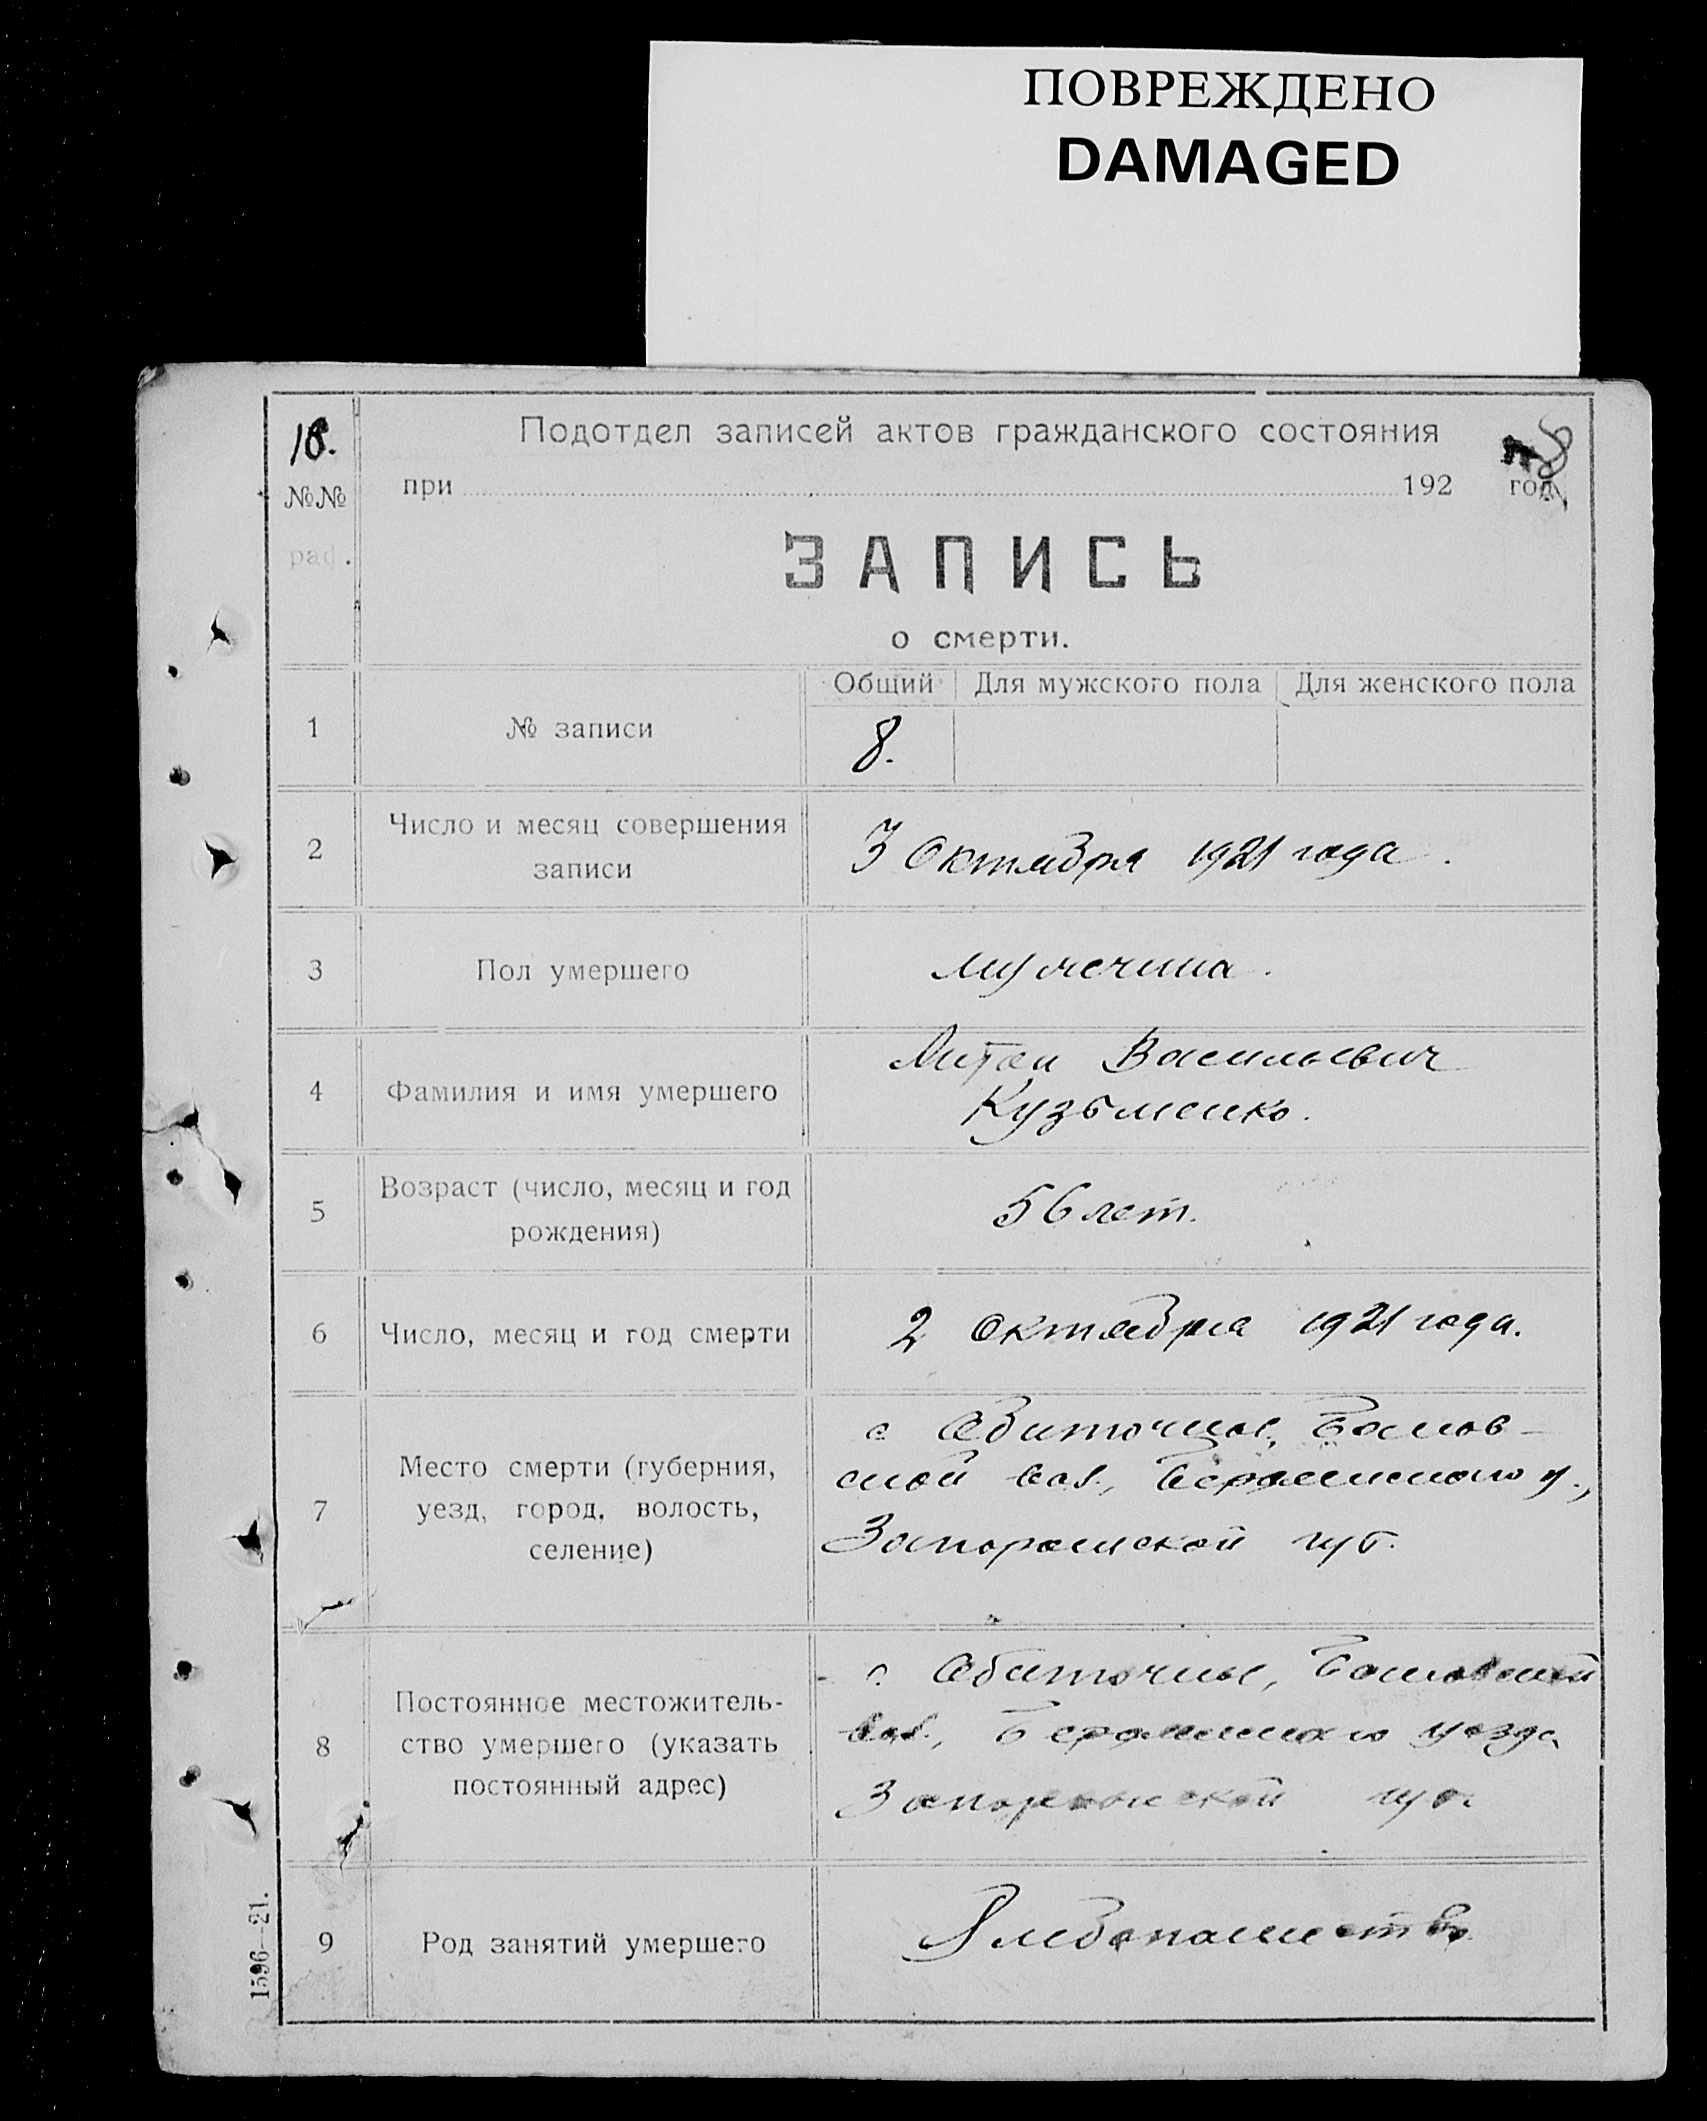 ПОВРЕЖДЕНО
DAMAGED
Подотдел записей актов гражданского состояния
№№
при 192 год
раф.
ЗАПИСЬ
о смерти.
Общий Для мужского пола Для женского пола
1 № записи 8.
2 Число и месяц совершения
записи
3 Октября 1921 года.
3 Пол умершего мужчина.
4 Фамилия и имя умершего
Васильевич
Кузьменко.
5 Возраст (число, месяц и год
рождения)
56 лет.
6 Число, месяц и год смерти 2 Октября 1921 года.
7 Место смерти (губерния,
уезд, город, волость,
селение)
с Обиточное,
ской вол., Бердянского у.,
Запорожской губ.
8 Постоянное местожитель-
ство умершего (указать
постоянный адрес)
с. Обиточное,
вол., Бердянского уезда
Запорожской губ.
9 Род занятий умершего Хлебопашество
1596—21.